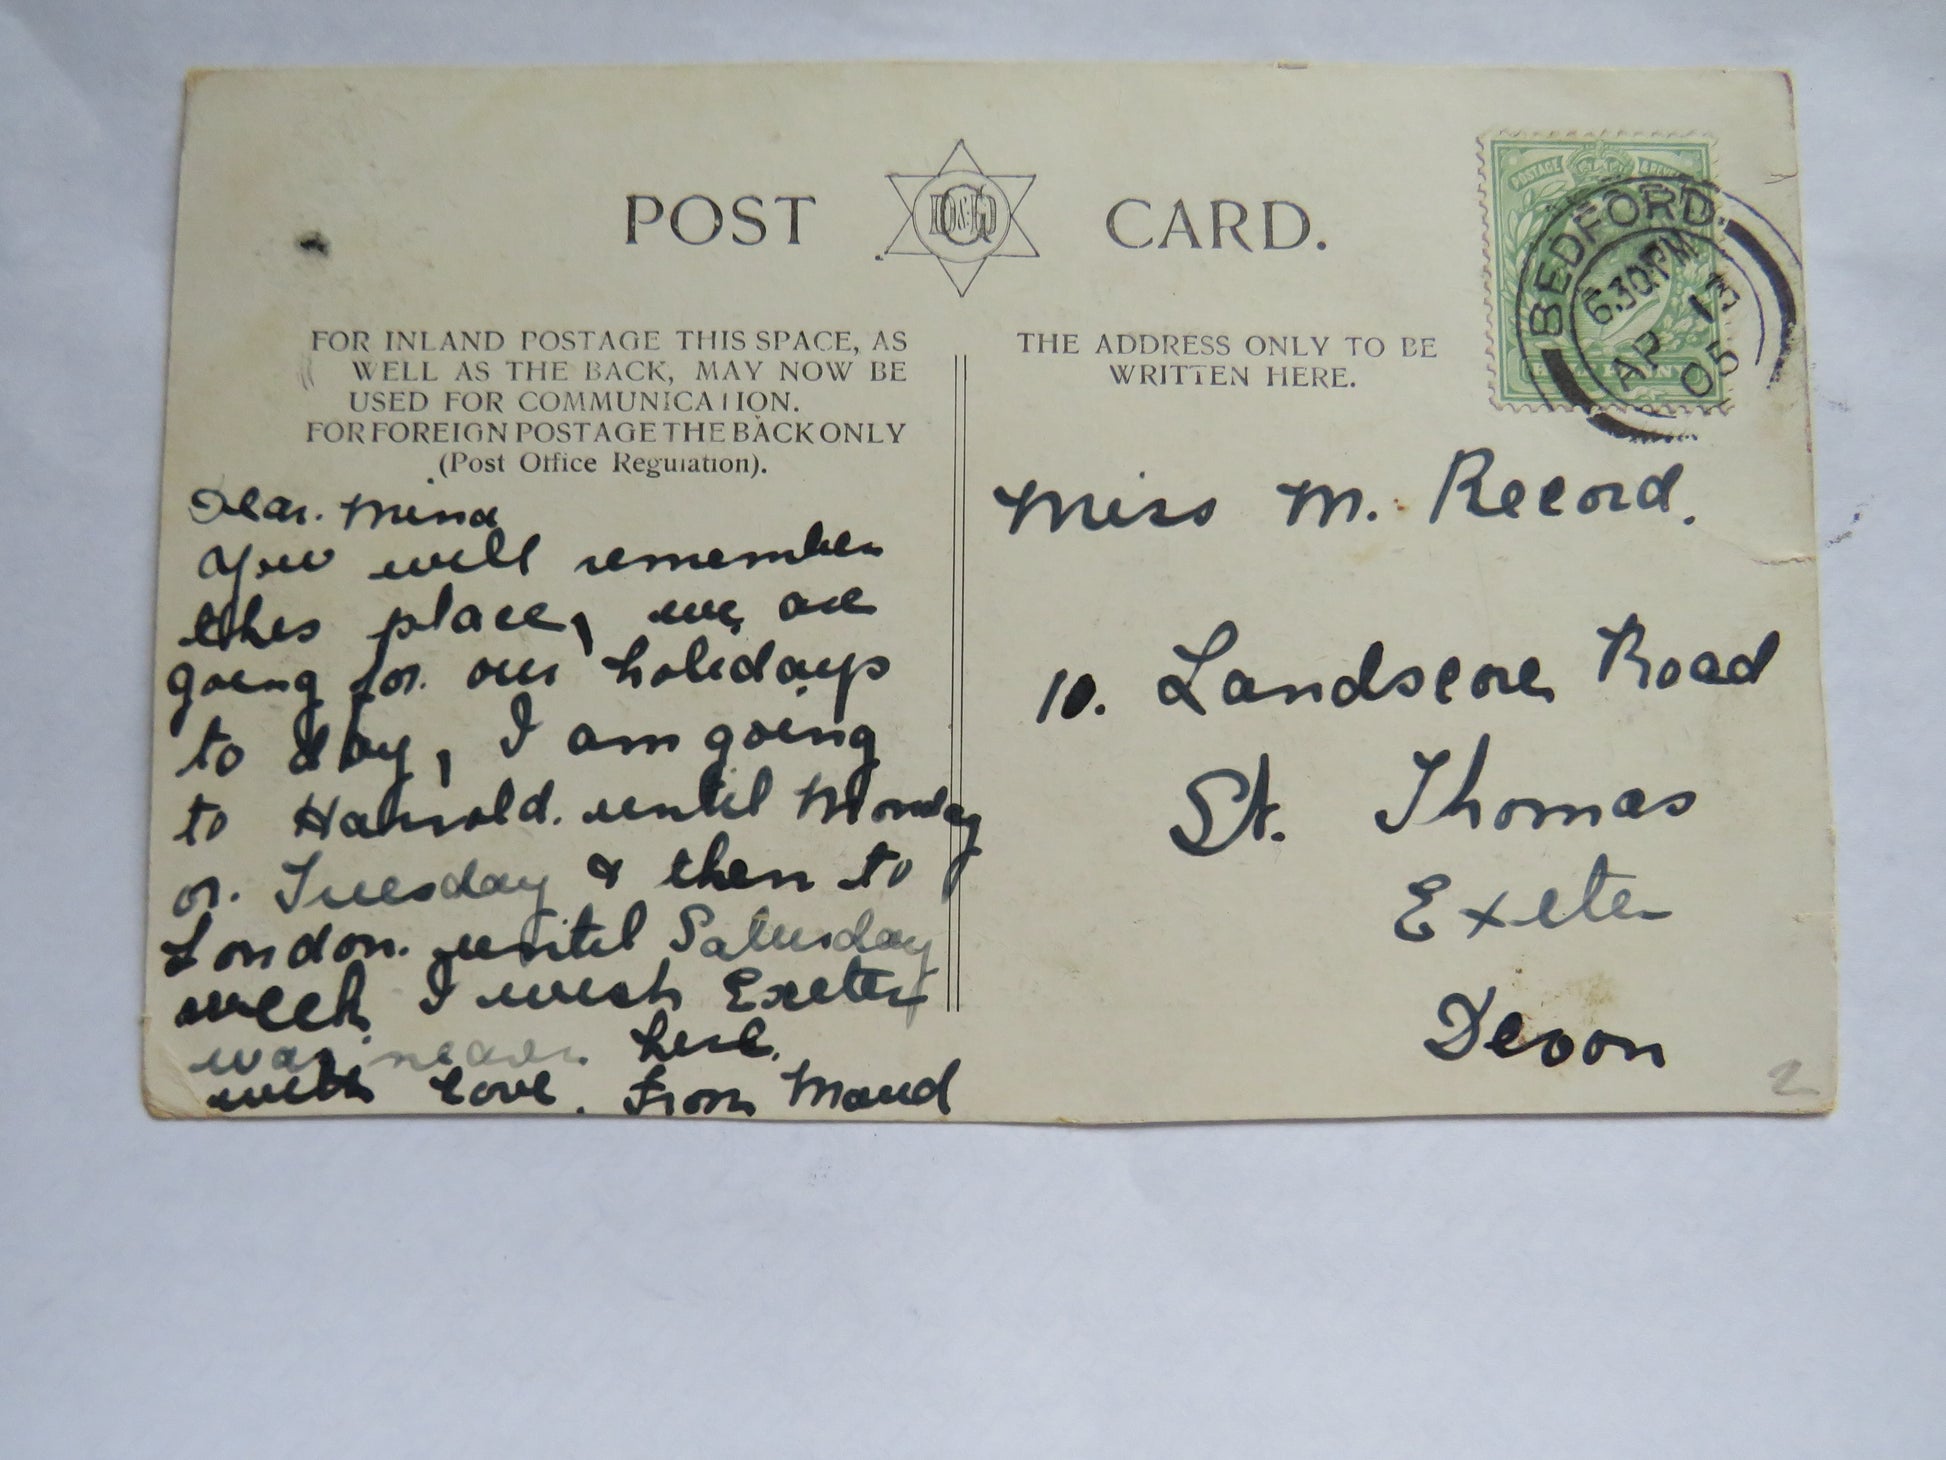 POST CARD.
FOR INLAND POSTAGE THIS SPACE, AS
WELL AS THE BACK, MAY NOW BE
USED FOR COMMUNICATION.
FOR FOREIGN POSTAGE THE BACK ONLY
(Post Office Regulation).
THE ADDRESS ONLY TO BE
WRITTEN HERE.
POSTAGE
BEDFORD.
6.30 PM
AP 13
05
Dear. Mina
You will remember
this place, we are
going for our holidays
to day, I am going
to Harrold. until Monday
or. Tuesday & then to
London. until Saturday
week, I wish Exeter
was nearer here.
with love. from Maud
Miss M. Record.
10. Landscore Road
St. Thomas
Exeter
Devon
2